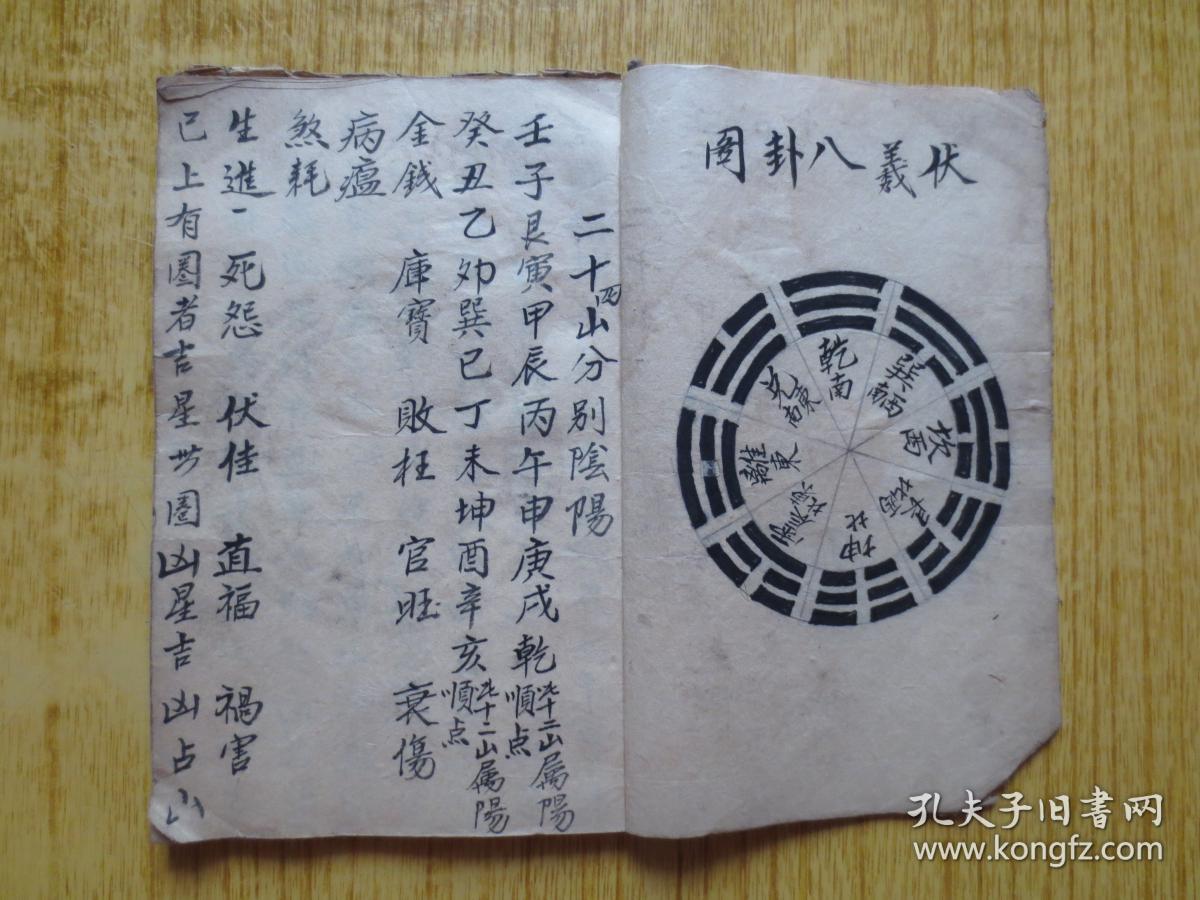 伏羲八卦图
乾南
巽西南
坎西
艮西北
坤北
震東北
離東
兑東南
二十四山分别陰陽
壬子艮寅甲辰丙午申庚戌乾
此十二山属陽
順点
癸丑乙卯巽巳丁未坤酉辛亥
此十二山属陽
順点
金錢 庫寶 敗枉 官旺 衰傷
病瘟
煞耗
生進 死怨 伏佳 直福 禍害
已上有圏者吉星 圏凶星吉凶占山
孔夫子旧书网
www.kongfz.com